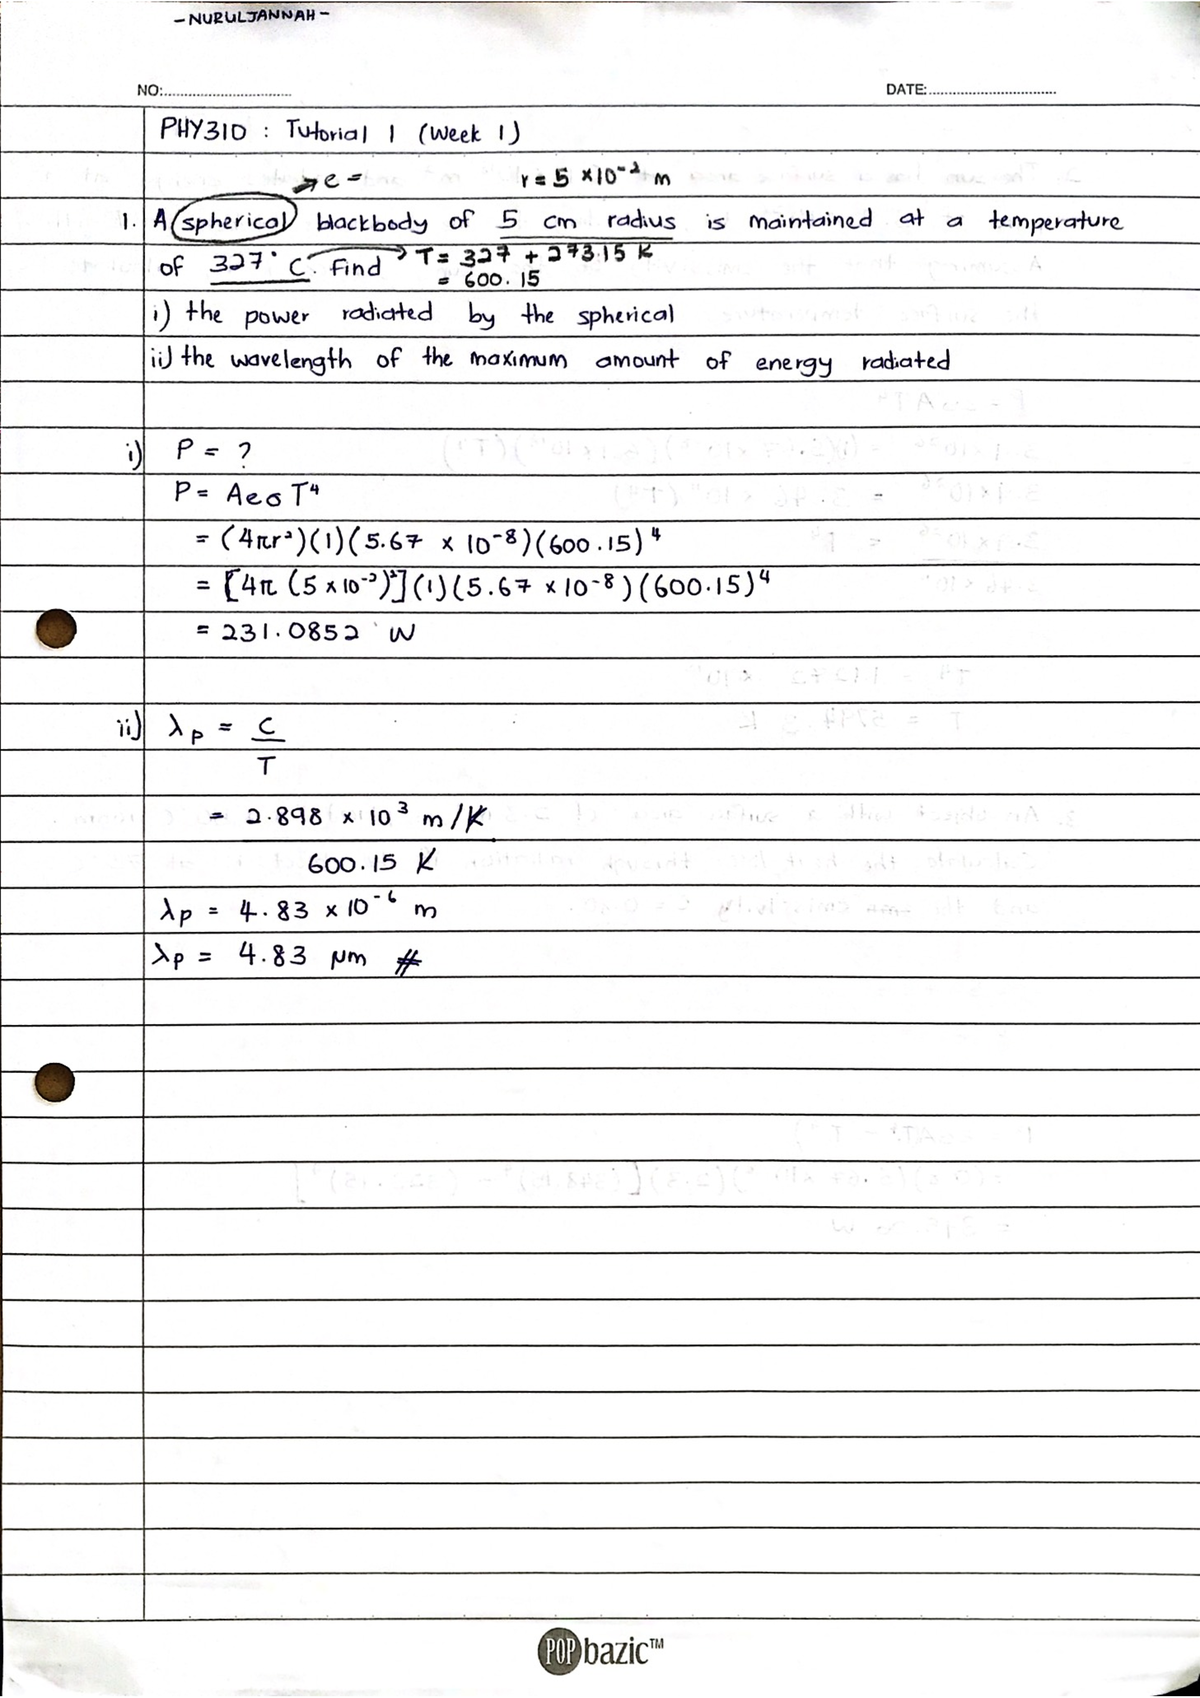 - NURULJANNAH -
NO:
DATE:
PHY310 : Tutorial 1 (Week 1)
→ e = r = 5 × 10⁻² m
1. A spherical blackbody of 5 cm radius is maintained at a temperature
of 327° C. Find → T = 327 + 273.15 K
= 600.15
i) the power radiated by the spherical
ii) the wavelength of the maximum amount of energy radiated
i) P = ?
P = AeσT⁴
= (4πr²)(1)(5.67 × 10⁻⁸)(600.15)⁴
= [4π (5 × 10⁻²)²](1)(5.67 × 10⁻⁸)(600.15)⁴
= 231.0852 W
ii) λp = C
T
= 2.898 × 10³ m/K
600.15 K
λp = 4.83 × 10⁻⁶ m
λp = 4.83 μm #
POP bazic™